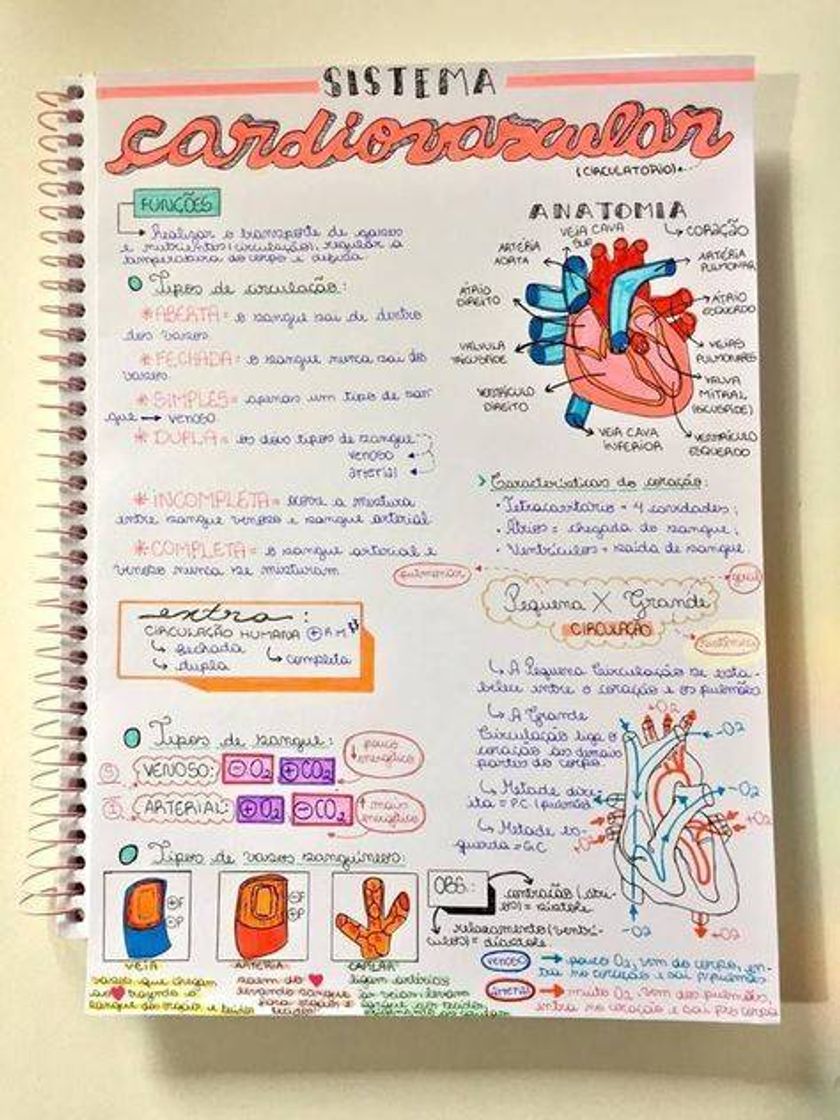 SISTEMA
cardiovascular
(CIRCULATÓRIO)
FUNÇÕES
Realizar o transporte de gases
e nutrientes (circulação), regular a
temperatura do corpo e defesa.
Tipos de circulação:
*ABERTA= o sangue sai de dentro
dos vasos
*FECHADA= o sangue nunca sai dos
vasos
*SIMPLES= apenas um tipo de san-
gue → venoso
*DUPLA= os dois tipos de sangue
venoso
arterial
*INCOMPLETA= ocorre a mistura
entre sangue venoso e sangue arterial
*COMPLETA= o sangue arterial e
venoso nunca se misturam
extra:
CIRCULAÇÃO HUMANA
fechada
dupla
completa
Tipos de sangue:
pouco
energético
VENOSO: -O2 +CO2
ARTERIAL: +O2 -CO2
mais
energético
Tipos de vasos sanguíneos:
+F
-P
VEIA
vasos que chegam
ao trazendo o
-F
+P
ARTÉRIA
saem do
levando sangue
CAPILAR
ligam artérias
ANATOMIA
CORAÇÃO
VEIA CAVA
SUP
ARTÉRIA
AORTA
ARTÉRIA
PULMONAR
ÁTRIO
DIREITO
ÁTRIO
ESQUERDO
VÁLVULA
TRICÚSPIDE
VEIAS
PULMONARES
VENTRÍCULO
DIREITO
VALVA
MITRAL
(BICÚSPIDE)
VEIA CAVA
INFERIOR
VENTRÍCULO
ESQUERDO
Características do coração:
• Tetracavitário = 4 cavidades;
• Átrios = chegada do sangue;
• Ventrículos = saída de sangue.
pulmonar
geral
Pequena X Grande
CIRCULAÇÃO
sistêmica
A Pequena Circulação se esta-
belece entre o coração e os pulmões
A Grande
Circulação liga o
coração às demais
partes do corpo.
Metade dire-
ita = P.C (pulmão)
Metade es-
querda = GC
+O2
-O2
-O2
+O2
+O2
-O2
+O2
OBS.:
contração (átri-
os) = sístole.
relaxamento (ventrí-
culos) = diástole.
venoso → pouco O2, vem do corpo, en-
tra no coração e sai p/pulmões
arterial → muito O2, vem dos pulmões,
entra no coração e sai pro corpo